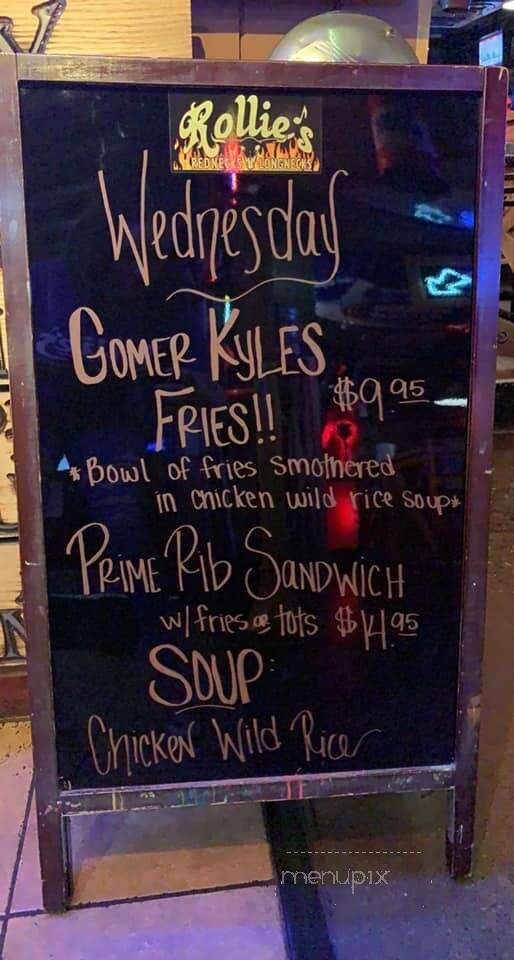 Rollie's
REDNECKS N' LONGNECKS
Wednesday
GOMER KYLES
FRIES!! $9.95
*Bowl of fries smothered
in chicken wild rice soup*
PRIME Rib SANDWICH
w/fries or tots $14.95
SOUP:
Chicken Wild Rice
menupix